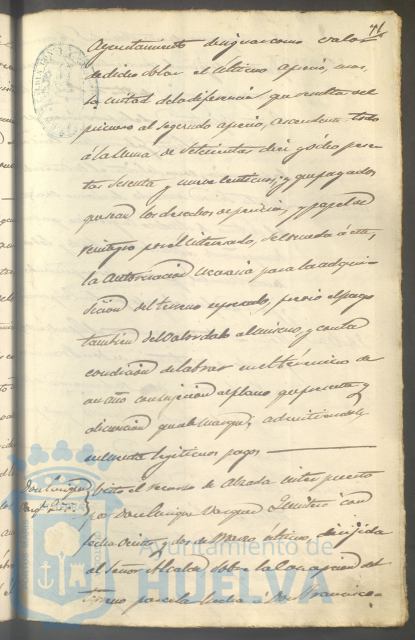 71
Ayuntamiento designar como valor
de dicho solar el último aprecio, mas
la mitad de la diferencia que resulta del
primero al segundo aprecio, ascendente todo
á la suma de setecientas diez y ocho pese
tas sesenta y nueve centimos; y que pagados
que sean los derechos de pericia, y papel de
reintegro por el interesado, se le conceda á este,
la autorizacion necesaria para la adqui-
sicion del terreno espresado, previo el pago
tambien del valor dado al mismo, y con la
condicion de labrar en el término de
un año con sujecion al plano que presenta y
alineacion que se le marque; admitiendosele
en la venta legitimos pagos
Don Enrique
Visto el recurso de Alzada interpuesto
por Don Enrique Vazquez con
fecha veinte y dos de Marzo último, dirijida
al Señor Alcalde sobre la concesion del
terreno para la hecha á Don Francisco
Ayuntamiento de
HUELVA